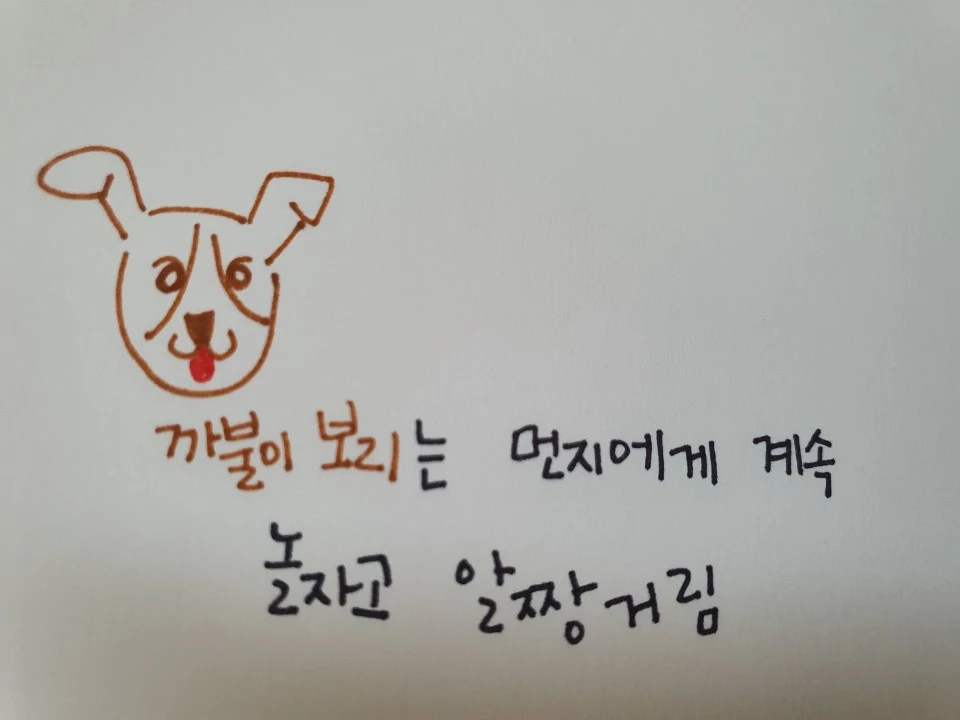 까불이 보리는 먼지에게 계속
놀자고 알짱거림